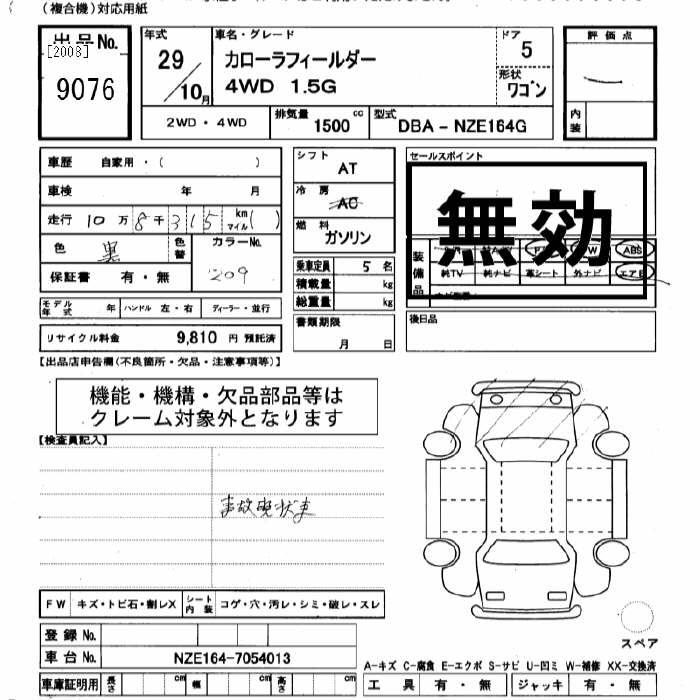 (複合機)対応用紙
出品No.
[2008]
9076
年式
29
10月
車名・グレード
カローラフィールダー
4WD 1.5G
ドア
5
形状
ワゴン
評価点
内装
2WD・4WD
排気量
1500 cc
型式
DBA-NZE164G
車歴 自家用・( )
車検 年 月
走行 10万8千315 km マイル( )
色 黒
色替
カラーNo.
209
保証書 有・無
モデル年式 年 ハンドル 左・右 ディーラー・並行
リサイクル料金 9,810 円 預託済
シフト
AT
冷房
AC
燃料
ガソリン
乗車定員 5 名
積載量 kg
総重量 kg
書類期限
月 日
セールスポイント
無効
装備品
ABS
純TV 純ナビ 革シート 外ナビ エアB
後日品
【出品店申告欄(不良箇所・欠品・注意事項等)】
機能・機構・欠品部品等は
クレーム対象外となります
【検査員記入】
事故現状車
FW キズ・トビ石・割レX シート内装 コゲ・穴・汚レ・シミ・破レ・スレ
登録No.
車台No. NZE164-7054013
車庫証明用 長さ cm 幅 cm 高さ cm
スペア
A-キズ C-腐食 E-エクボ S-サビ U-凹ミ W-補修 XX-交換済
工具 有・無 ジャッキ 有・無